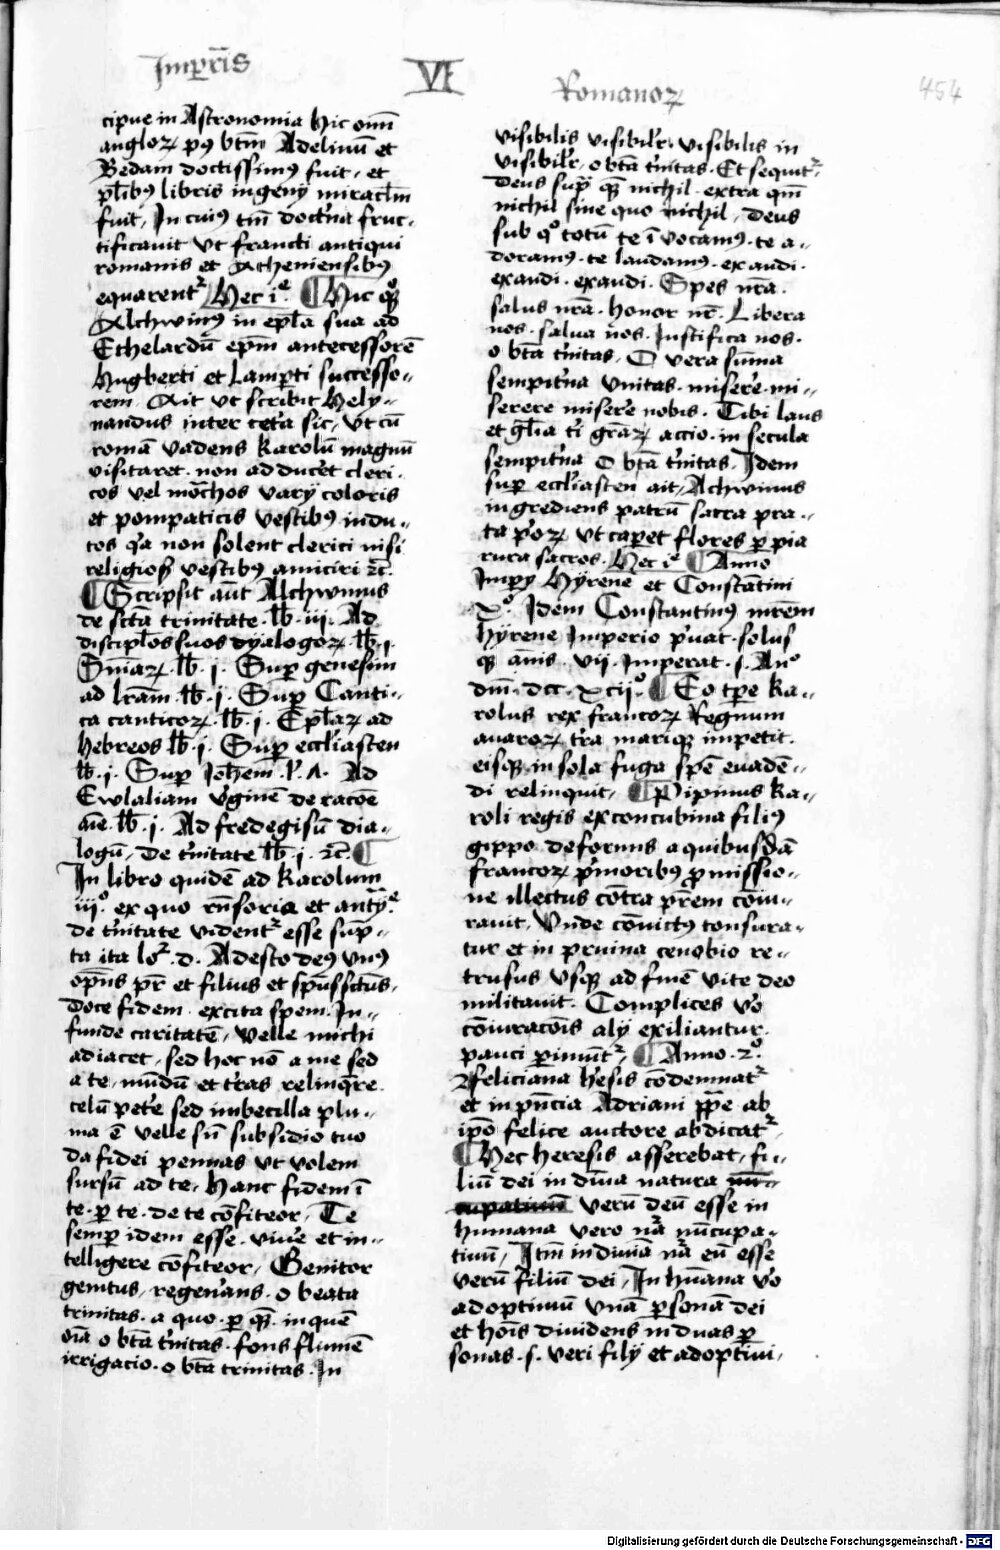 Imp̄eris VI Romanoꝝ 454
cipue in Astronomia hic om̄
angloꝝ pꝰ btm̄ Adelinū et
Bedam doctissimꝰ fuit, et
pl̄ibꝰ libris ingenÿ miraclm̄
fuit, In cuiꝰ tm̄ doctͥna fruc-
tificauit vt francti antiqui
romanis et Atheniensibꝰ
equarentᷣ Hec iͤ. Hic qͦꝫ
Alchwinꝰ in epl̄a sua ad
Ethelardū ep̄m antecessorē
Hugberti et Lamp̲ti successo-
rem Ait vt scribit Hely-
nandus inter cet̄a sic, vt cū
romā vadens karolū magnū
visitaret. non adducēt cleri-
cos vel mōchos varÿ coloris
et pompaticis vestibꝰ indu-
tos qͥa non solent clerici nisi
religiosꝭ vestibꝰ amiciri ꝛc̄.
Scripsit aūt Alchwinus
de sctā trinitate. lb̄. iij. Ad
discipl̄os suos dyalogoꝝ. lb̄. j.
Sm̄aꝝ. lb̄. j. Sup̲ genesim
ad lr̄am. lb̄. j. Sup̲ Canti-
ca canticoꝝ. lb̄. j. Epl̄aꝝ ad
hebreos lb̄. j. Sup̲ eccl̄iasten
lb̄. j. Sup̲ Joh̄em .l̄. A. Ad
Ewlaliam vͥginē de racōe
aīe. lb̄. j. Ad fredegisū dia-
logū, De tͥnitate lb̄. j. ꝛc̄.
In libro quidē ad karolum
iijͦ. ex quo rn̄soria et antyͤ.
de tͥnitate videntᷣ esse sūp-
ta ita loᷣ. d. Adesto deꝰ vnꝰ
op̄ns pr̄ et filius et sp̄ussctūs.
Doce fidem. excita spem. In-
funde caritatē, velle michi
adiacet, sed hoc nō a me sed
a te, mūdū et tͥras relinqͦre
celū petēe sed imbecilla plu-
ma ē velle sn̄ subsidio tuo
da fidei pennas vt volem
sursū ad te, hanc fidem ī
te. p̲ te. de te cōfiteor, Te
semp̲ idem esse. viuēe et in-
telligere cōfiteor, Genitor
genitus, regenͥans. o beata
trinitas. a quo. p̲ quē. in quē
oīa o btā tͥnitas. fons flumē
irrigacio. o btā trinitas. In
visibilis visibilr̄. visibilis in
visibilr̄. o btā tͥnitas. Et sequitᷣ.
Deus sup̲ quē nichil. extra quē
nichil sine quo nichil, deus
sub qͦ totū te īvocamꝰ. te a-
doramꝰ. te laudamꝰ. exaudi.
exaudi. exaudi. Spes nr̄a.
salus nr̄a. honor nr̄. Libera
nos. salua nos. Justifica nos.
o btā tͥnitas. O vera sūma
sempitͥna vnitas. miserēe. mi-
serere miserēe nobis. Tibi laus
et gl̄ia tͥ graꝝ accio. in secula
sempitͥna O btā tͥnitas. Idem
sup̲ eccl̄iasten ait, Alchwinus
ingrediens patrū sacra pra-
ta pͥoꝝ vt carpet flores p̲ pia
rura sacros. Hec iͤ Anno
Impÿ Hyrene et Constātini
xͦ. Idem Constantinꝰ mr̄em
hyrene Imperio pͥuat. solus
qꝫ ānis. vij. Imperat. s. Anͦ
dn̄i. dcc. xcijͦ. Eo tp̄e ka-
rolus rex francoꝝ Regnum
auaroꝝ tͥra mariqꝫ impetit.
eisqꝫ in sola fuga spē euadē-
di relinquit, Pipinus ka-
roli regis ex concubina filiꝰ
gippo deformis a quibusdā
francoꝝ pͥmoribꝰ p̲missio-
ne illectus cōtra pr̄em cōiu-
rauit, Vnde cōuictꝰ tonsura-
tur et in pruina cenobio re-
trusus vsqꝫ ad finē vite deo
militauit. Complices vͦo
cōiuracōis alÿ exiliantur.
pauci p̲imūtᷣ, Anno. 2ͦ.
feliciana hͤesis cōdemnatᷣ
et in pn̄cia Adriani pp̄e ab
ip̄o felice auctore abdicatᷣ,
Hec heresis asserebat, fi-
liū dei in diuīa natura
verū deū esse in
humana vero nr̄a nūcupa-
tiuū, Itm̄ in diuīa nr̄a eū esse
verū filiū dei, In hūana vͦo
adoptiuū vnā p̲sonā dei
et hoīs diuidens in duas p̲-
sonas. s. veri filÿ et adoptiui,
Digitalisierung gefördert durch die Deutsche Forschungsgemeinschaft - DFG